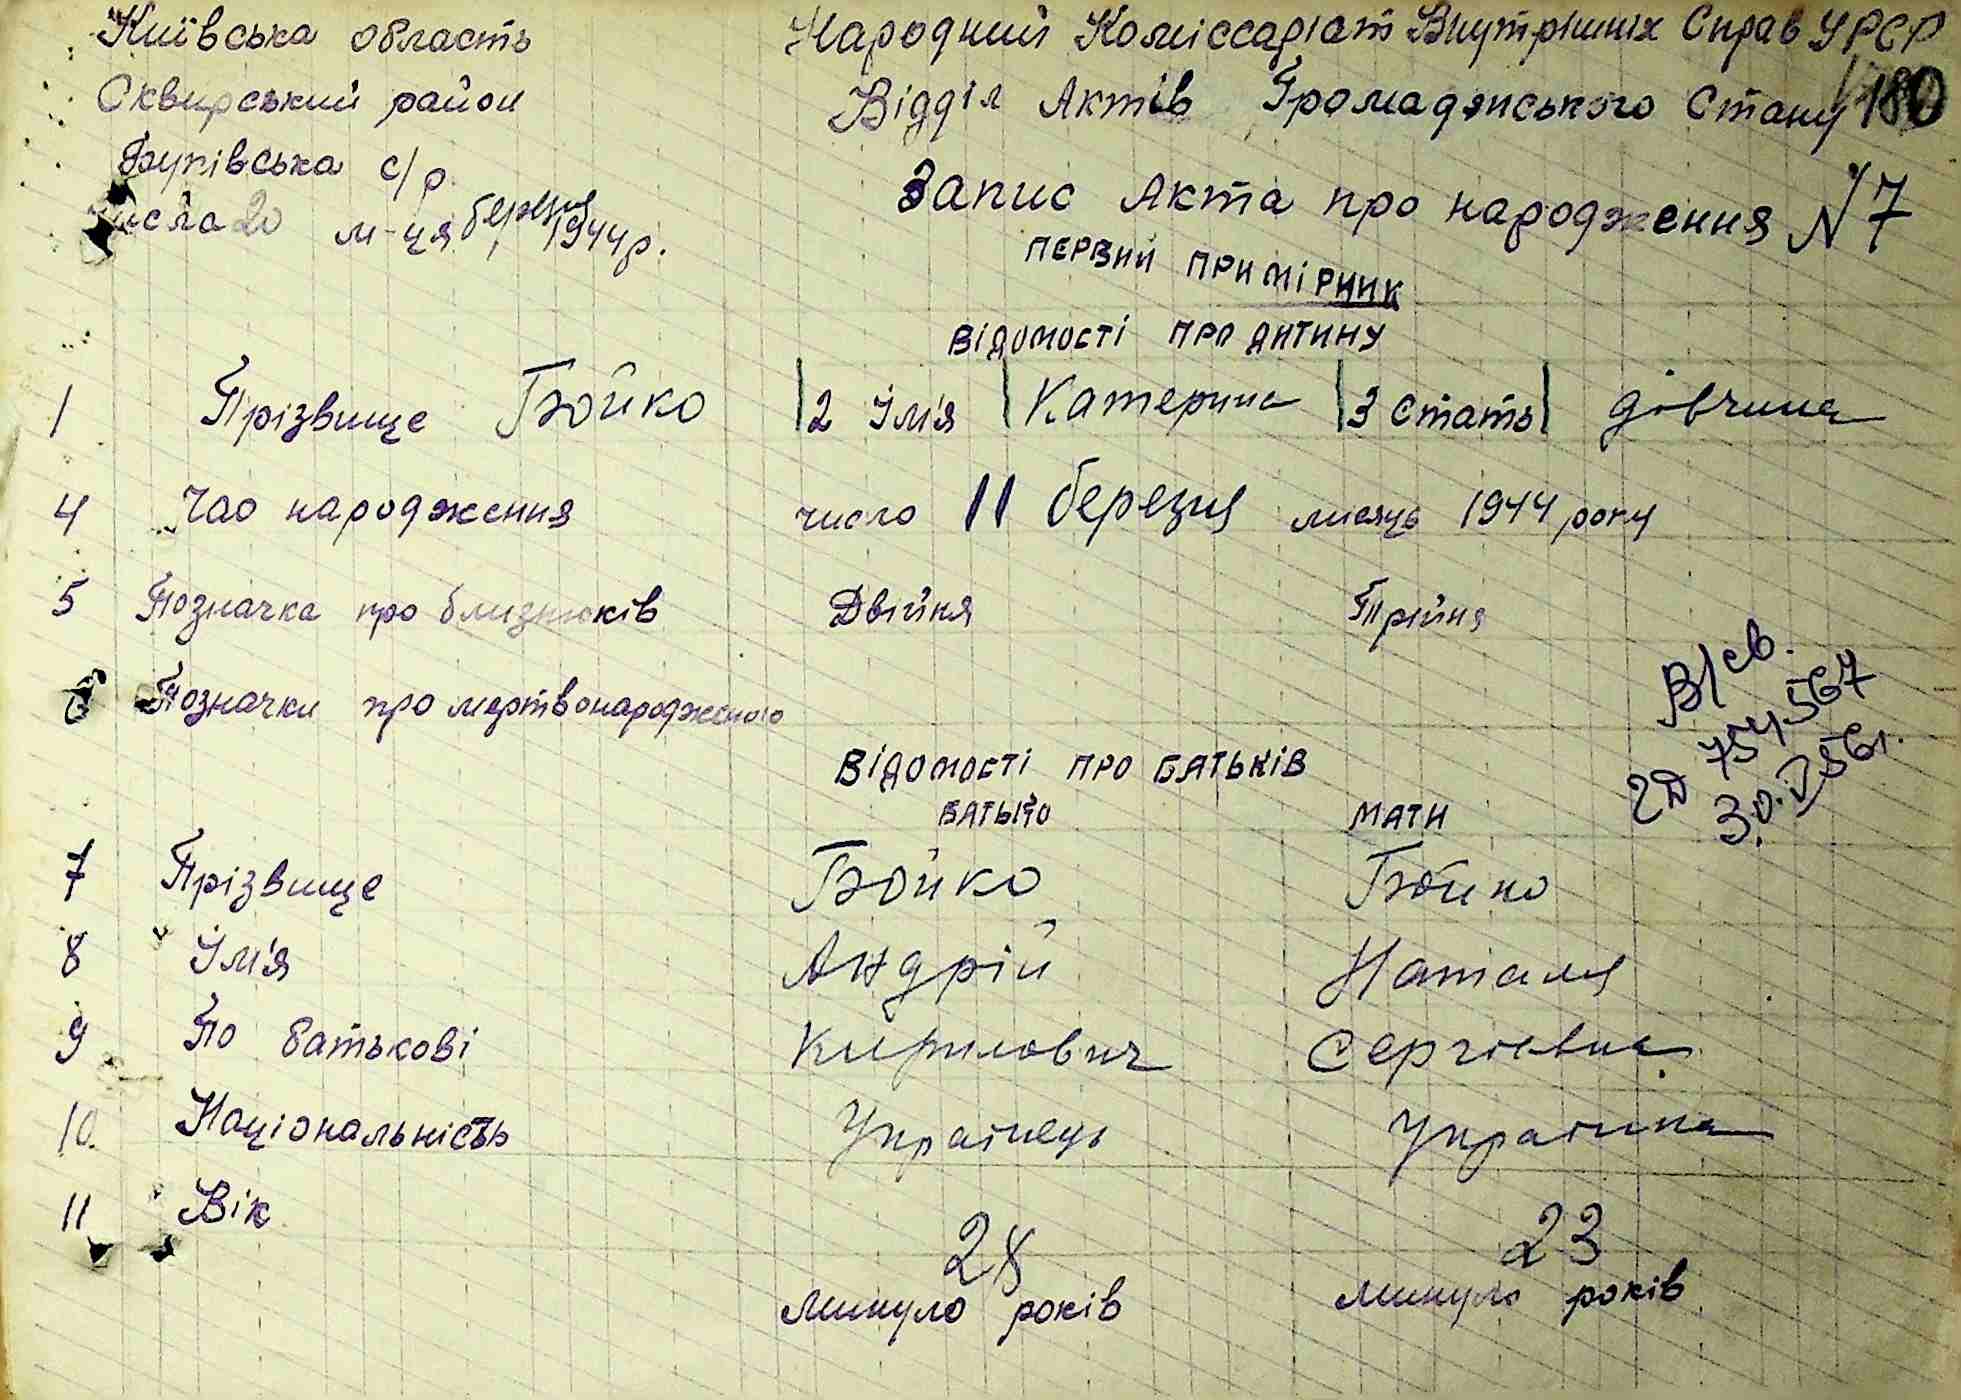 Київська область
Сквирський район
Буківська с/р
числа 20 м-ця березня 1944 р.
Народний Коміссаріат Внутрішніх Справ УРСР
Відділ Актів Громадянського Стану 180
Запис Акта про народження N 7
ПЕРВИЙ ПРИМІРНИК
ВІДОМОСТІ ПРО ДИТИНУ
1 Прізвище Бойко 2 Ім'я Катерина 3 Стать дівчина
4 Час народження число 11 березня місяць 1944 року
5 Позначка про близнюків Двійня Трійня
6 Позначки про мертвонародженого
В/св.
754567
30.V 56г.
ВІДОМОСТІ ПРО БАТЬКІВ
БАТЬКО МАТИ
7 Прізвище Бойко Бойко
8 Ім'я Андрій Наталя
9 По батькові Кирилович Сергієвна
10. Національність Українець Українка
11 Вік 28 23
минуло років минуло років